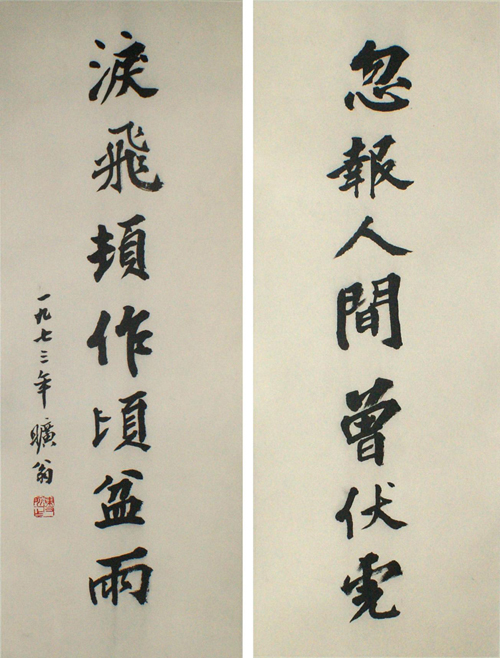 忽報人間曾伏虎
淚飛頓作頃盆雨
一九七三年曠翁